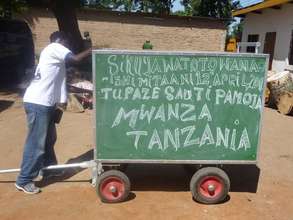 SIKU YA WATOTO WANA-
ISHI MITAANI 12 APRIL
TUPAZE SAUTI PAMOJA
MWANZA
TANZANIA